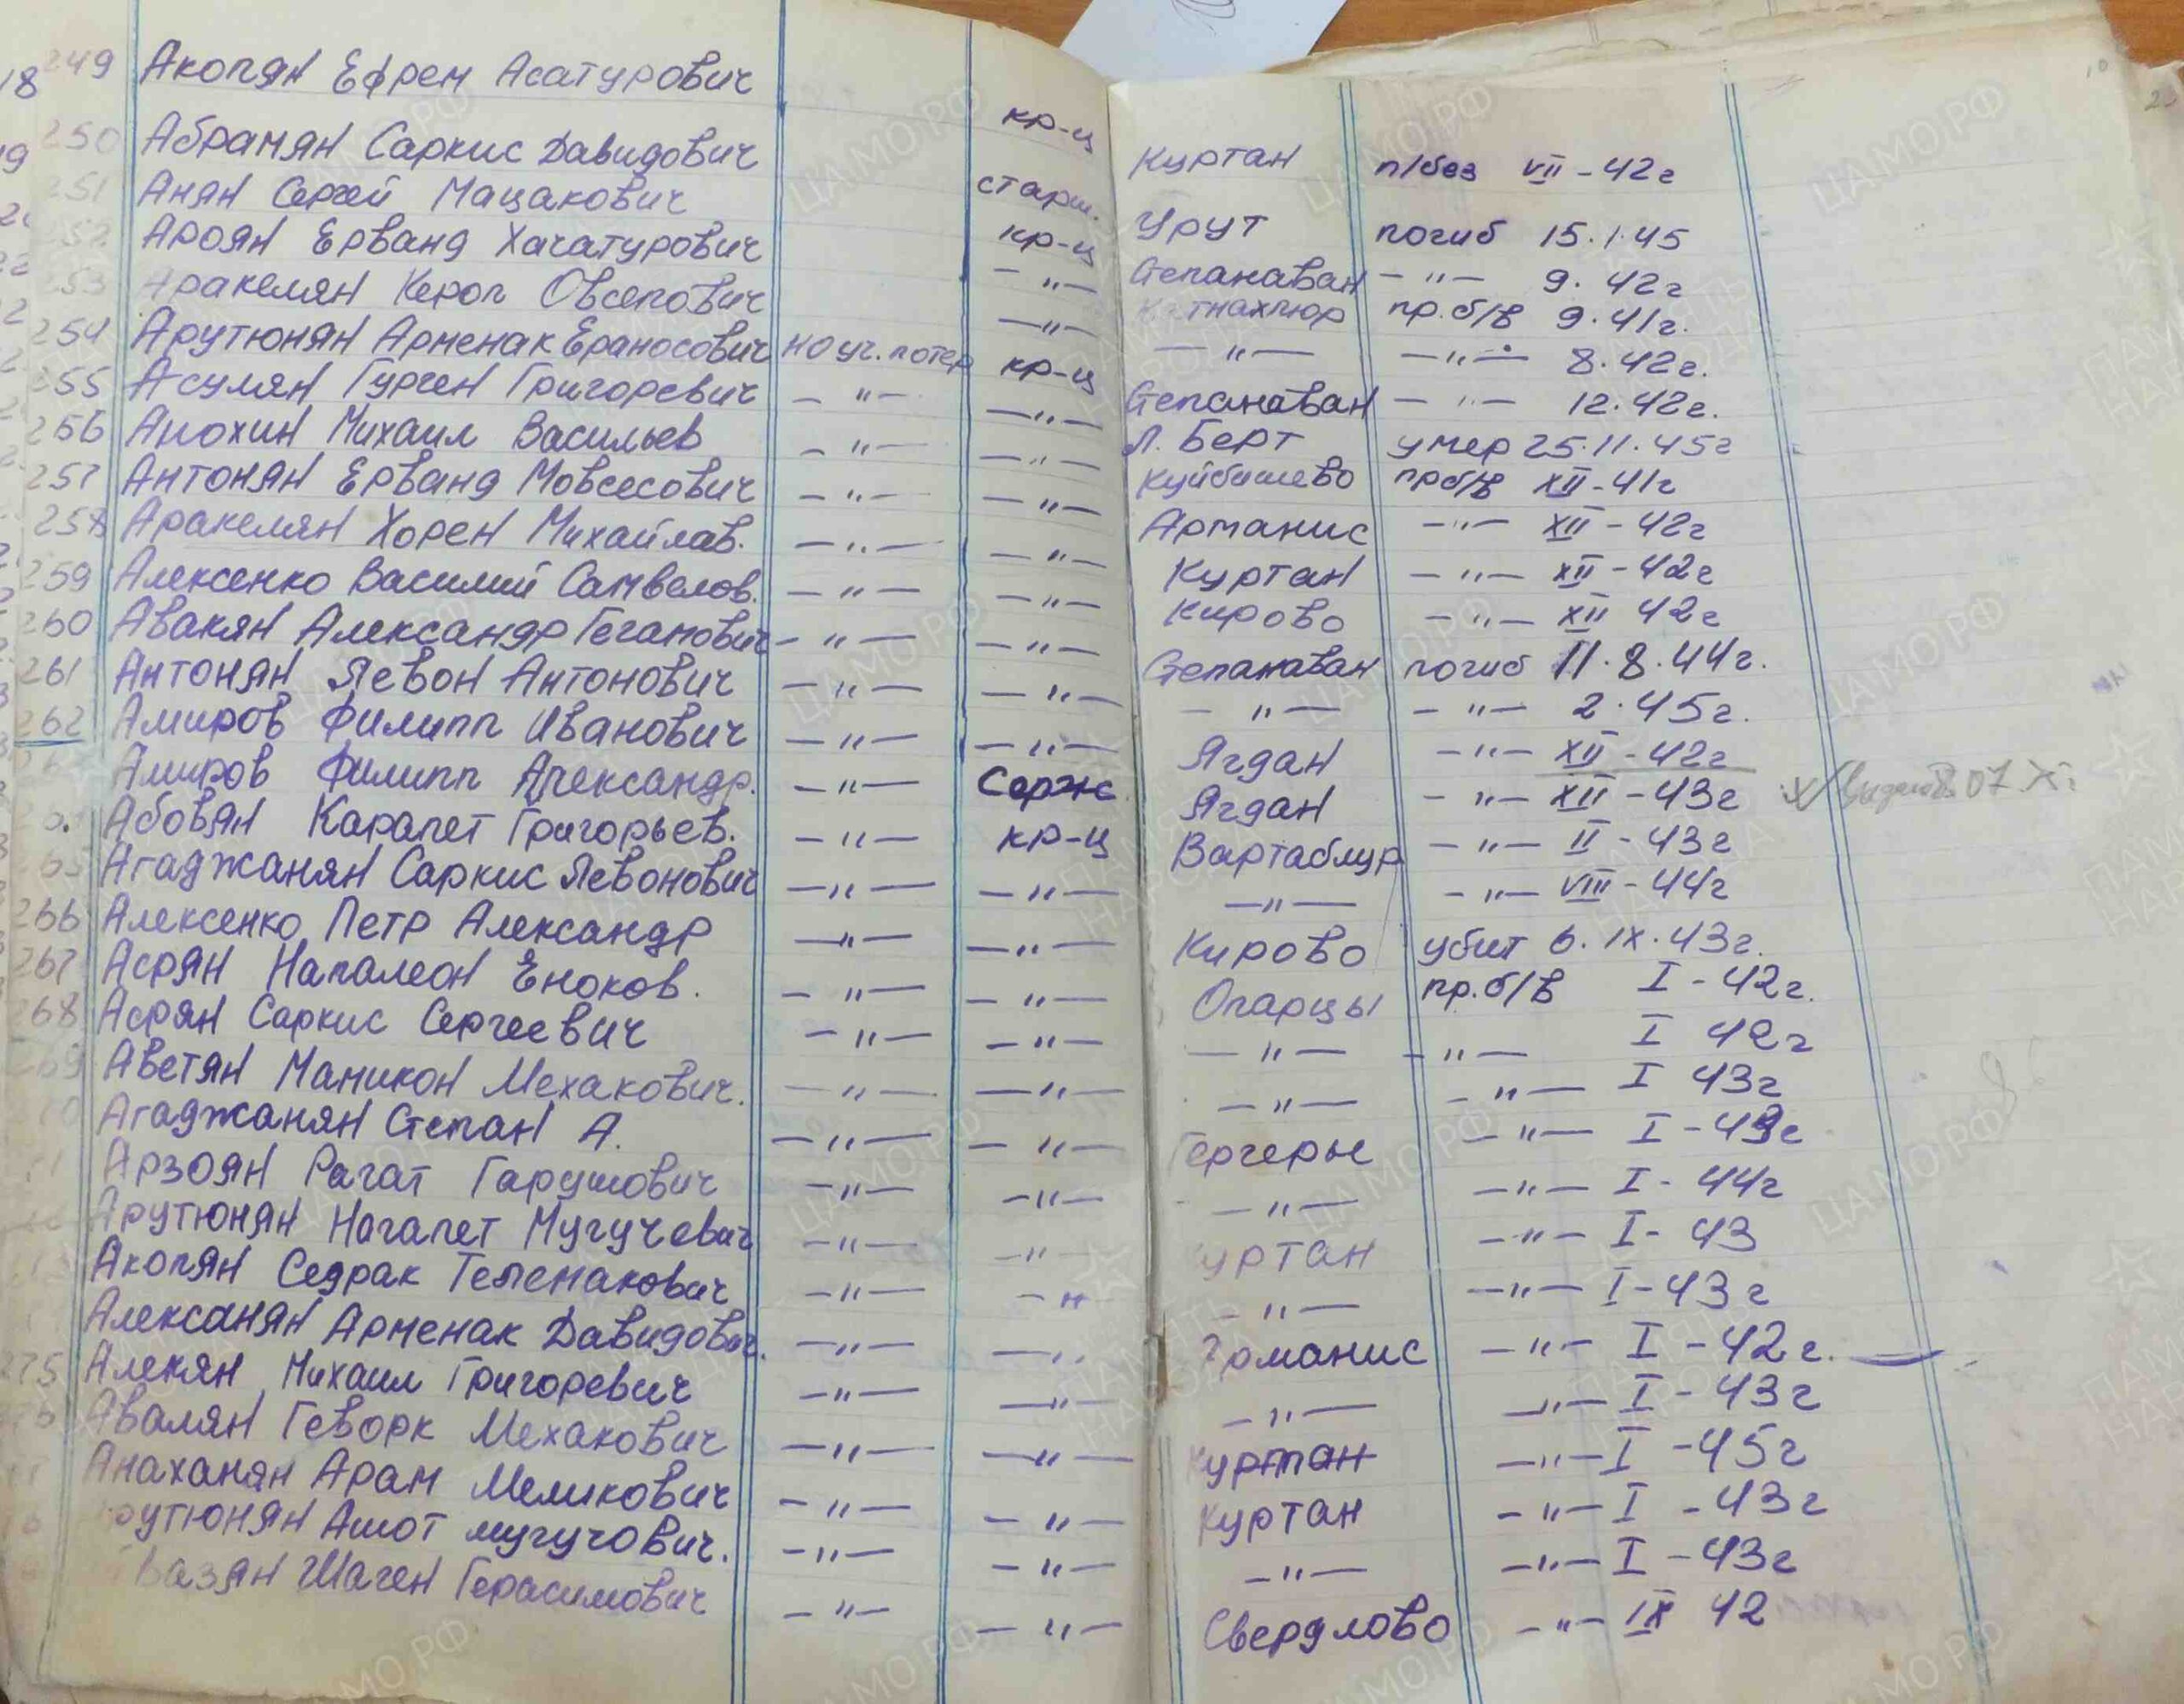 18 249 Акопян Ефрем Асатурович кр-ц Куртан п/без VII-42г
19 250 Абрамян Саркис Давидович старш. Урут погиб 15.1.45
251 Анян Сергей Мацакович кр-ц Степанаван -"- 9.42г
252 Ароян Ерванд Хачатурович -"- тнахпюр пр.б/в 9.41г.
253 Аракелян Кероп Овсепович -"- -"- -"- 8.42г.
254 Арутюнян Арменак Ераносович но уч. потер кр-ц Степанаван -"- 12.42г.
255 Асулян Гурген Григоревич -"- -"- Л. Берт умер 25.11.45г
256 Анохин Михаил Васильев -"- -"- Куйбишево прб/в XII-41г
257 Антонян Ерванд Мовсесович -"- -"- Арманис -"- XII-42г
258 Аракелян Хорен Михайлов. -"- -"- Куртан -"- XII-42г
259 Алексенко Василий Самвелов. -"- -"- Кирово -"- XII 42г
260 Авакян Александр Гегамович -"- -"- Степанаван погиб 11.8.44г.
261 Антонян Левон Антонович -"- -"- -"- -"- 2.45г.
262 Амиров Филипп Иванович -"- -"- Ягдан -"- XII-42г
Амиров Филипп Александр. -"- Серж Ягдан -"- XII-43г
Абовян Карапет Григорьев. -"- кр-ц Вартаблур -"- II-43г
65 Агаджанян Саркис Левонович -"- -"- -"- -"- VIII-44г
266 Алексенко Петр Александр -"- -"- Кирово убит 6.IX.43г.
267 Асрян Напалеон Еноков. -"- -"- Опарцы пр.б/в I-42г.
268 Асрян Саркис Сергеевич -"- -"- -"- -"- I 42г
269 Аветян Мамикон Мехакович. -"- -"- -"- -"- I 43г
Агаджанян Степан А. -"- -"- Гергеры -"- I-43г
Арзоян Рагат Гарушович -"- -"- -"- -"- I-44г
Арутюнян Нагапет Мугучевич -"- -"- уртан -"- I-43
Акопян Седрак Телемакович -"- -"- -"- -"- I-43г
Алексанян Арменак Давидович. -"- -"- Арманис -"- I-42г.
275 Алекян Михаил Григоревич -"- -"- -"- -"- I-43г
76 Авалян Геворк Мехакович -"- -"- Куртан -"- I-45г
Анаханян Арам Меликович -"- -"- Куртан -"- I-43г
рутюнян Ашот мугучович. -"- -"- -"- -"- I-43г
вазян Шаген Герасимович -"- -"- Свердлово -"- IX 42